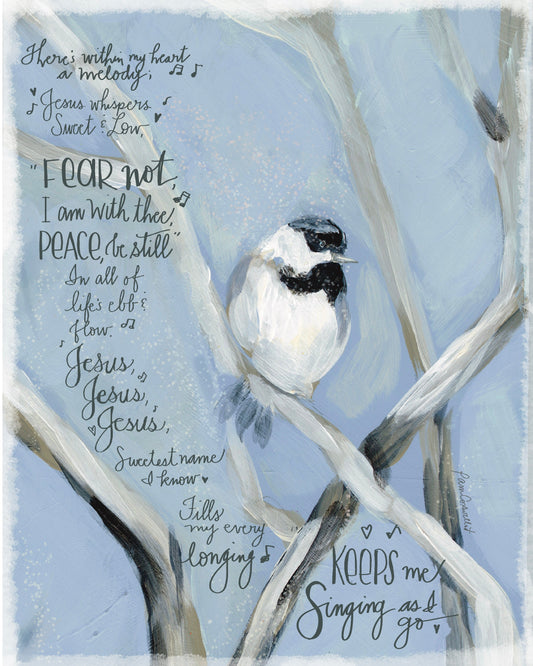 There's within my heart
a melody;
Jesus whispers
Sweet & Low,
"FEAR not,
I am with thee,
PEACE, be still"
In all of
life's ebb &
flow.
Jesus,
Jesus,
Jesus,
Sweetest name
I know
Fills
my every
longing
KEEPS me
Singing as I
go